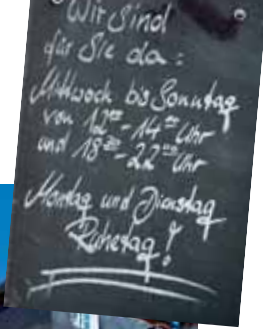 Wir Sind
für Sie da:
Mittwoch bis Sonntag
von 12⁰⁰-14⁰⁰ Uhr
und 18⁰⁰-22⁰⁰ Uhr
Montag und Dienstag
Ruhetag!